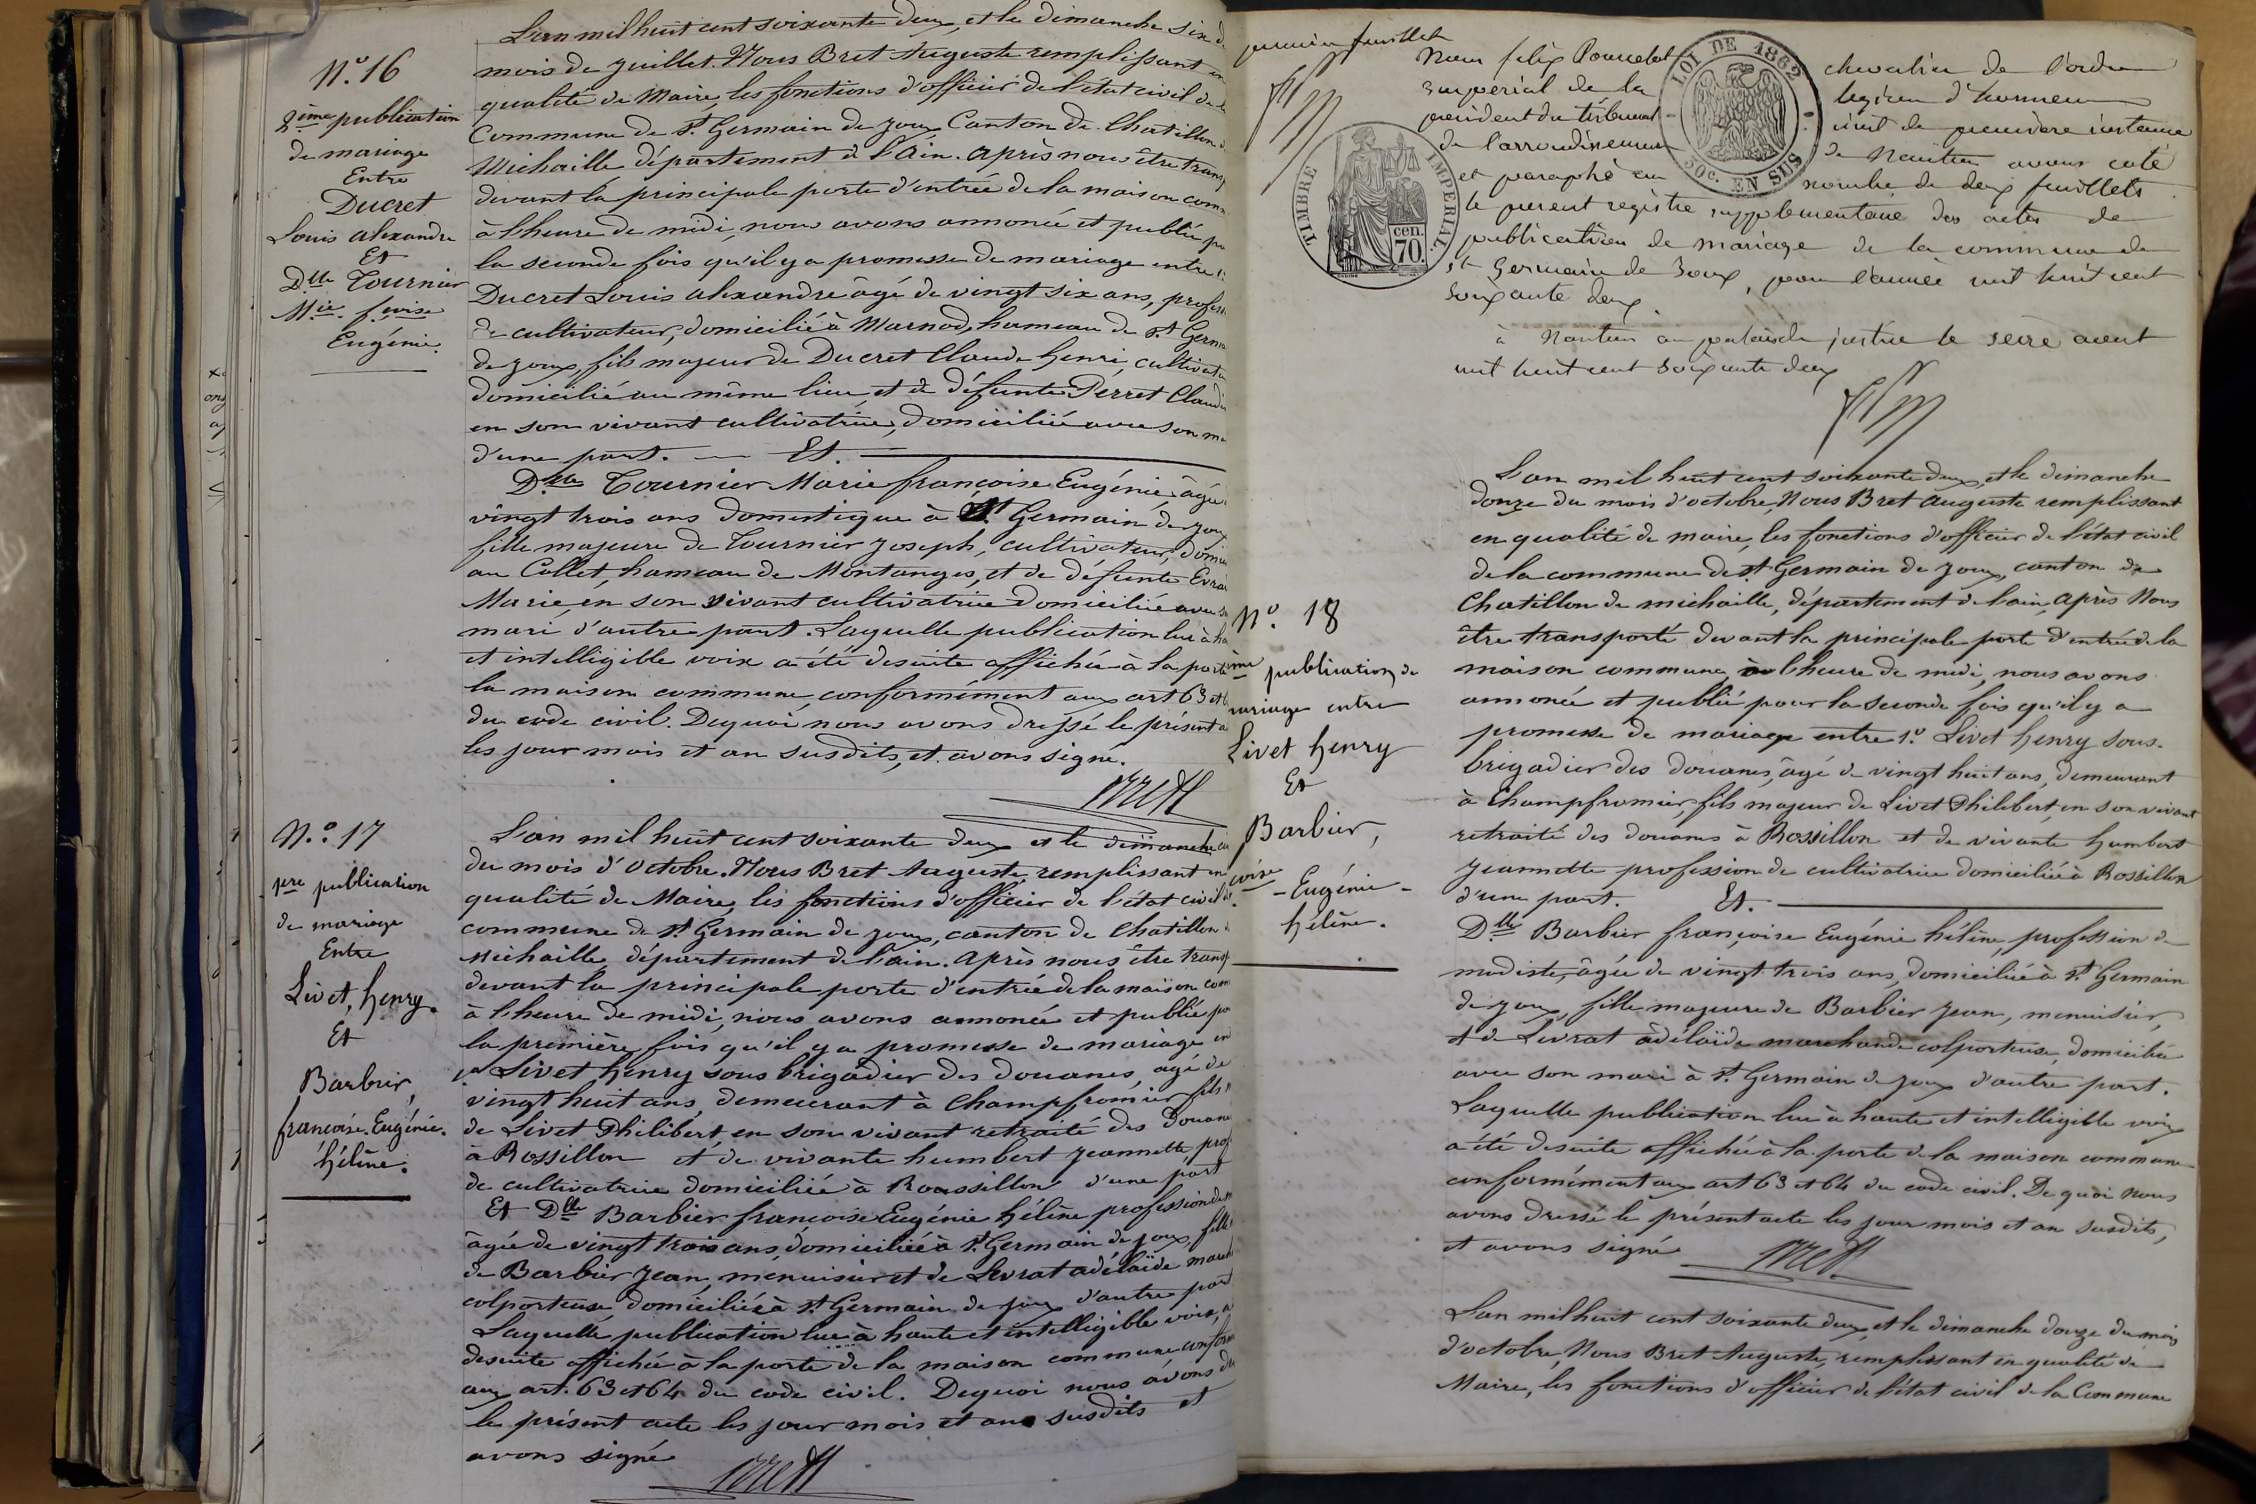 N.º 16
2ème publication
de mariage
Entre
Ducret
Louis alexandre
Et
Dlle Tournier
Mie. fçoise
Eugénie.
L'an mil huit cent soixante deux, et le dimanche six d
mois de juillet. Nous Bret Auguste remplissant en
qualité de Maire, les fonctions d'officier de l'état civil de l
Commune de St Germain de joux Canton de Chatillon d
Michaille département de l'Ain. Après nous être transp
devant la principale porte d'entrée de la maison comm
à l'heure de midi, nous avons annoncé et publié po
la seconde fois qu'il y a promesse de mariage entre
Ducret Louis alexandre âgé de vingt six ans, profess
de cultivateur, domicilié à Marnod, hameau de St Germ
de joux, fils majeur de Ducret Claude henri, cultivate
domicilié au même lieu, et de défunte Perret Claudi
en son vivant cultivatrice, domiciliée avec son m
d'une part. — Et. —
Dlle Tournier Marie françoise Eugénie, âgée
vingt trois ans domestique à St Germain de joux
fille majeure de Tournier joseph, cultivateur, domic
au Collet, hameau de Montanges, et de défunte Evra
Marie, en son vivant cultivatrice domiciliée avec s
mari d'autre part. Laquelle publication lue à ha
et intelligible voix a été desuite affichée à la porte
la maison commune, conformément aux art 63 et 6
du code civil. Dequoi nous avons dressé le présent a
les jour mois et an susdits, et avons signé.
Bret
N.º 17
1re publication
de mariage
Entre
Livet, henry.
Et
Barbier,
francoise. Eugénie.
hélène.
L'an mil huit cent soixante deux et le dimanche cin
du mois d'Octobre. Nous Bret Auguste, remplissant en
qualité de Maire, les fonctions d'officier de l'état civil d
commune de St Germain de joux, canton de Chatillon d
Michaille département de l'ain. Après nous être transp
devant la principale porte d'entrée de la maison com
à l'heure de midi, nous avons annoncé et publié po
la première fois qu'il y a promesse de mariage en
1º Livet henry sous brigadier des douanes, agé de
vingt huit ans, demeurant à Champfromier fils
de Livet Philibert, en son vivant retraité des Douane
à Rossillon et de vivante humbert jeannette, prof
de cultivatrice domiciliée à Roussillon d'une part
Et Dlle Barbier françoise Eugénie hélène profession de
âgée de vingt trois ans, domiciliée à St Germain de joux, fille
de Barbier jean, menuisier et de Levrat adélaïde march
colporteuse, domiciliée à St Germain de joux d'autre part
Laquelle publication lue à haute et intelligible voix, a
desuite affichée à la porte de la maison commune conform
aux art. 63 et 64 du code civil. Dequoi nous avons d
le présent acte les jour mois et ans susdits et
avons signé
Bret
premier feuillet
Nous felix chevalier de l'ordre
impérial de la légion d'honneur
président du tribunal civil de première instance
de l'arrondissement de Nantua avons coté
et paraphé au nombre de deux feuillets
le présent registre supplémentaire des actes de
publication de mariage de la commune de
St Germain de Joux, pour l'année mil huit cent
soixante deux.
à Nantua au palais de justice le seize aout
mil huit cent soixante deux
LOI DE 1862
50c. EN SUS
TIMBRE IMPERIAL
cen.
70.
N.º 18
ème publication de
mariage entre
Livet henry
Et
Barbier,
çoise
- Eugénie -
hélène.
L'an mil huit cent soixante deux, et le dimanche
douze du mois d'octobre, Nous Bret Auguste remplissant
en qualité de maire, les fonctions d'officier de l'état civil
de la commune de St Germain de joux, canton de
Chatillon de michaille, département de l'ain, Après Nous
être transporté devant la principale porte d'entrée de la
maison commune à l'heure de midi, nous avons
annoncé et publié pour la seconde fois qu'il y a
promesse de mariage entre 1º. Livet henry sous-
brigadier des douanes, âgé de vingt huit ans, demeurant
à Champfromier, fils majeur de Livet Philibert, en son vivant
retraité des douanes à Rossillon et de vivante humbert
jeannette profession de cultivatrice domiciliée à Rossillon
d'une part. Et. —
Dlle Barbier françoise Eugénie hélène, profession de
modiste, âgée de vingt trois ans, domiciliée à St Germain
de joux, fille majeure de Barbier jean, menuisier,
et de Levrat adélaïde marchande colporteuse, domiciliée
avec son mari à St Germain de joux d'autre part.
Laquelle publication lue à haute et intelligible voix
a été desuite affichée à la porte de la maison commune
conformément aux art 63 et 64 du code civil. De quoi Nous
avons dressé le présent acte les jour mois et an susdits,
et avons signé
Bret
L'an mil huit cent soixante deux, et le dimanche douze du mois
d'octobre, Nous Bret Auguste, remplissant en qualité de
Maire, les fonctions d'officier de l'état civil de la Commune